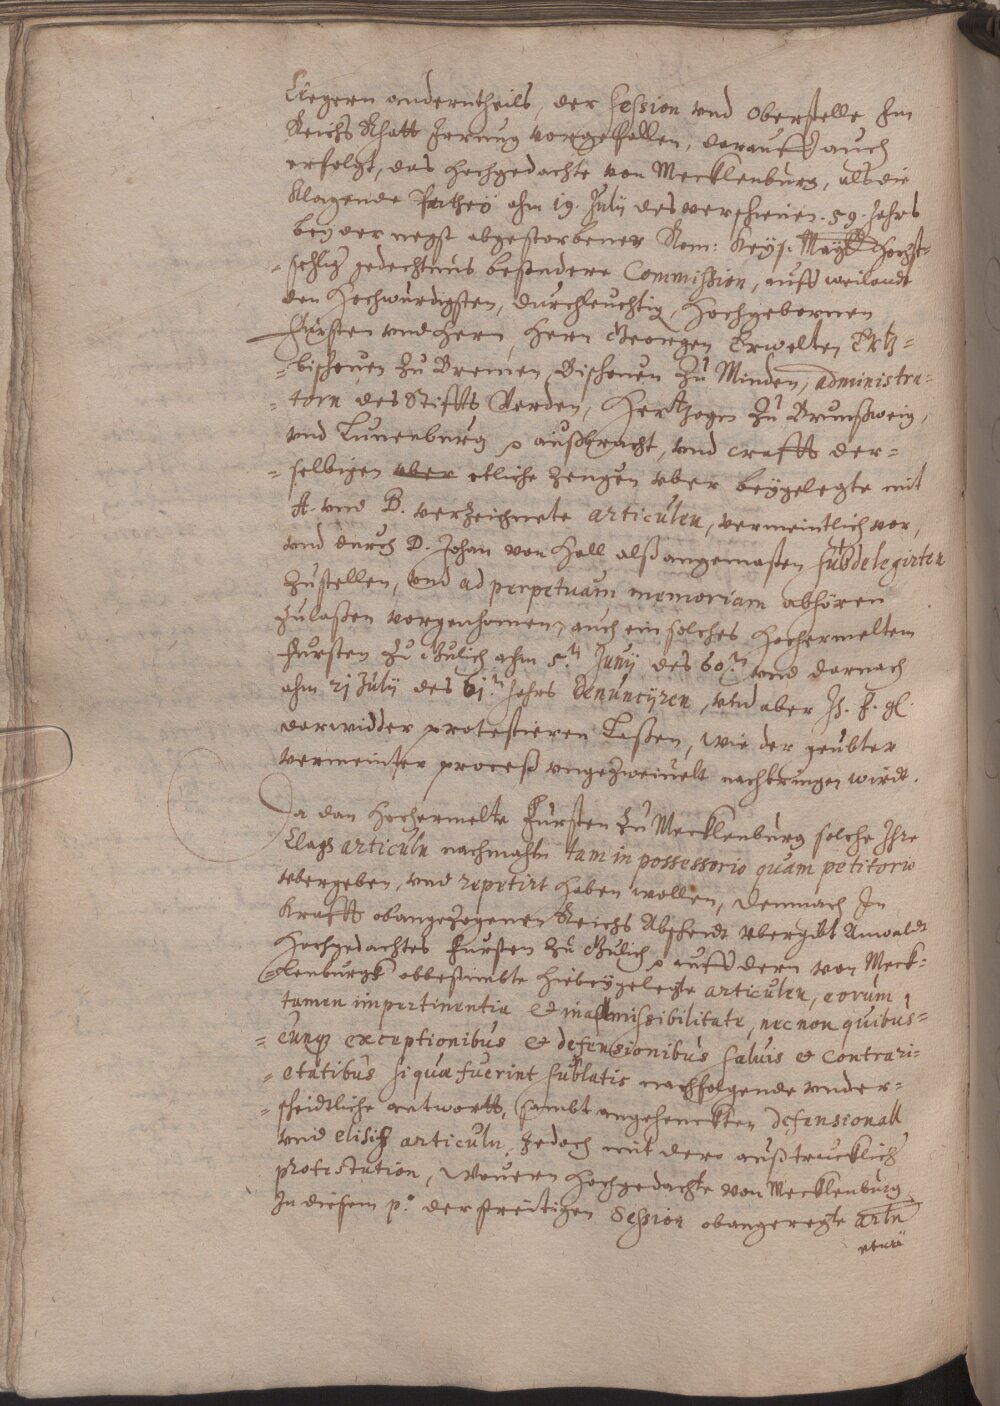 Clegern anderntheils, der Session vnd Oberstelle Im
Reichs Rhatt Irrung vorgefallen, darauff auch
erfolgt, das hochgedachte von Mecklenburg, als die
Klagende Parthey ahm 19. July des verschienen .59. Jahrs
bey der negst abgestorbener Rom: Keys. Maytt hochst=
=sehlig gedechtnus besondere Commission, auff weilandt
den Hochwurdigsten, durchleuchtig, Hochgebornen
Fursten vnd hern, hern Georgen Erwelten Ertz=
=bischouen zu Bremen, Bischouen zu Minden, administra=
=torn des Stiffts Verden, Hertzogen zu Brunßweig,
vnd Lunenburg ꝛc außbracht, vnd craffts der=
=selbigen etliche zeugen vber beygelegte mit
A. vnd B. verzeichnete articulen, vermeintlich vor,
vnd durch D. Johan von Hall alß angemasten subdelegirten
zustellen, vnd ad perpetuam memoriam abhören
zulaßen vorgenhomen, auch ein solches hochermeltem
Fursten zu Gulich ahm 5.tn Juny des 60.tn vnd darnach
ahm 21 July des 61.tn Jahrs denuncijren, vnd aber Ih. f. gl.
darwidder protestieren laßen, wie der geubter
vermeinter proceß vngezweiuelt nachbrungen wirdt.
Da dan hochermelte Fursten zu Mecklenburg solche Ihre
Clags articuln nachmahln tam in possessorio quam petitorio
vbergeben, vnd repetirt haben wollen, demnach In
Krafft obangezogenen Reichs Abscheidt vbergibt Anwaldt
hochgedachtes Fursten zu Gulich ꝛc auff dern von Meck=
=lenburgk obbestimbte hiebeygelegte articulen, eorum
tamen impertinentia et inadmissibilitate, nec non quibus=
=cunq exceptionibus et defensionibus saluis et contrari=
=etatibus si quæ fuerint sublatis nachfolgende vnder=
=scheidtliche antwortt, sambt angehenckten defensionall
vnd elisiß articuln, Jedoch mit dero außtrucklich
protestation, Wouern hochgedachte von Mecklenburg
In diesem p.º der streitigen Session obangeregte artn
etwa